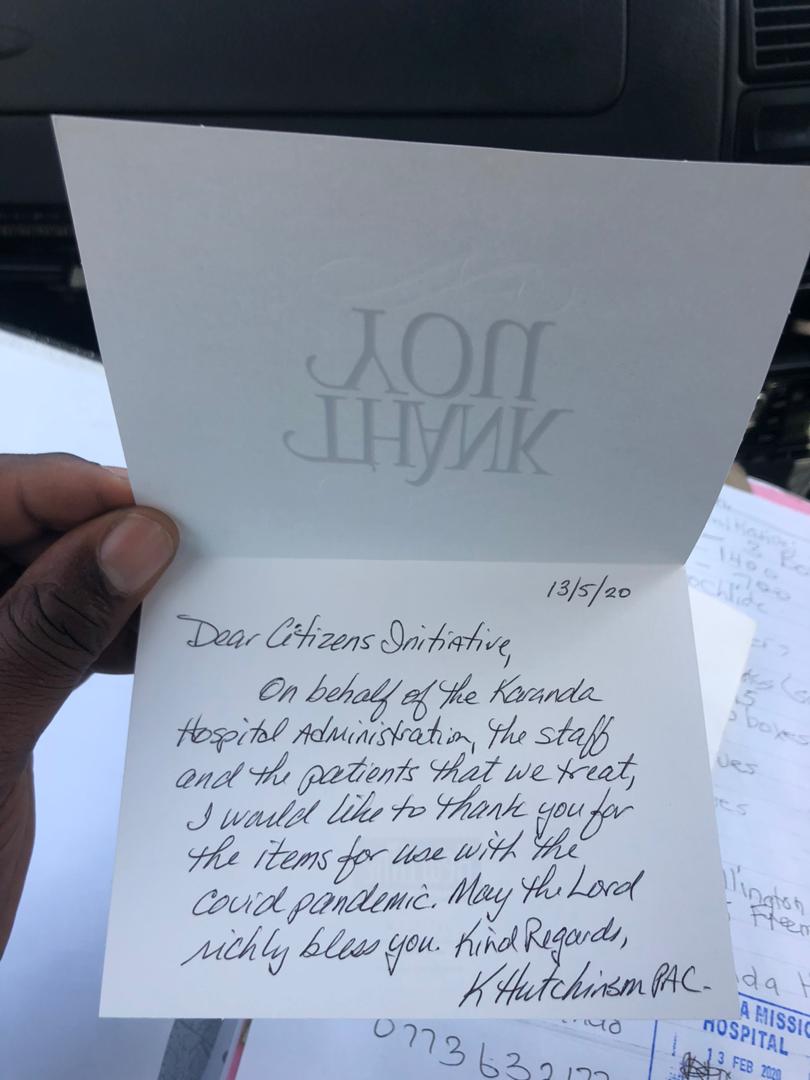 THANK
YOU
13/5/20
Dear Citizens Initiative,
On behalf of the Karanda
Hospital Administration, the staff
and the patients that we treat,
I would like to thank you for
the items for use with the
covid pandemic. May the Lord
richly bless you. Kind Regards,
K Hutchinson PAC.
1400
700
boxes
lington
Freem
da H
A MISSIO
HOSPITAL
13 FEB 2020